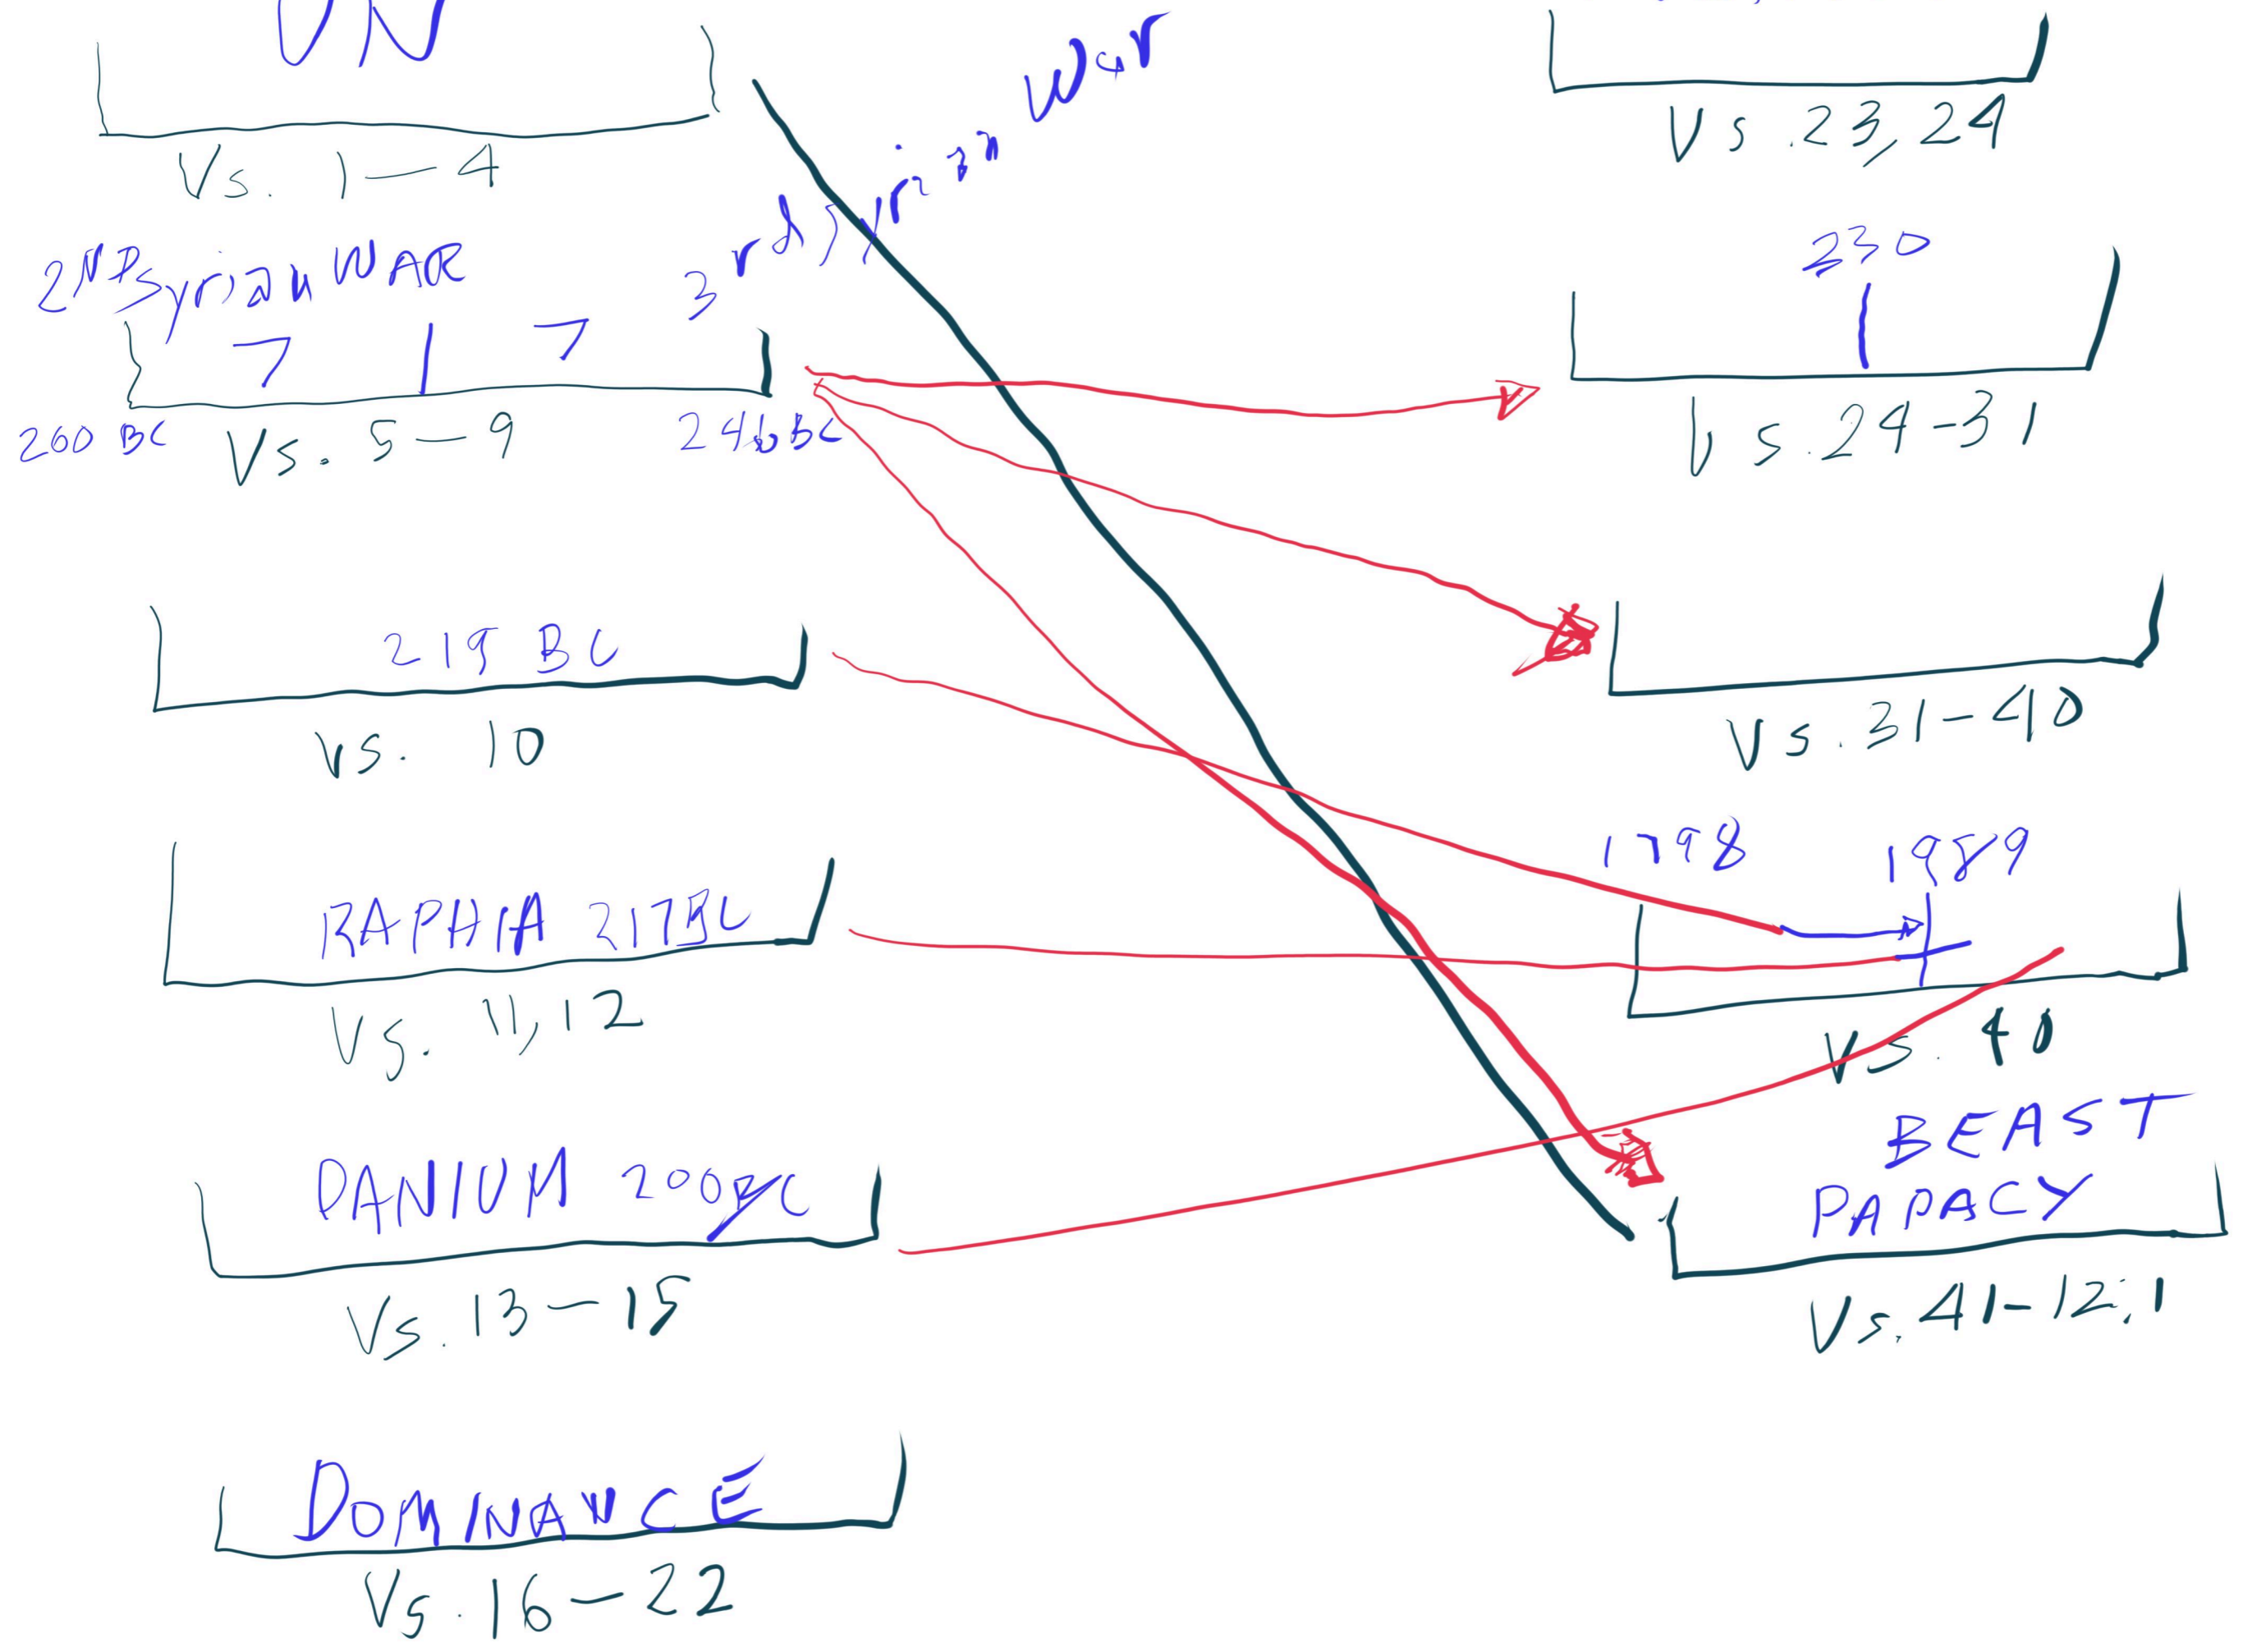 UN
Vs. 1-4
3rd Syrian War
2ND Syrian WAR
7 | 7
260 BC
Vs. 5-9
246 BC
219 BC
Vs. 10
RAPHIA 217 BC
Vs. 11,12
PANIUM 200 BC
Vs. 13-15
DOMINANCE
Vs. 16-22
Vs. 23,24
230
Vs. 24-31
Vs. 31-40
1798
1989
Vs. 40
BEAST
PAPACY
Vs. 41-12:1